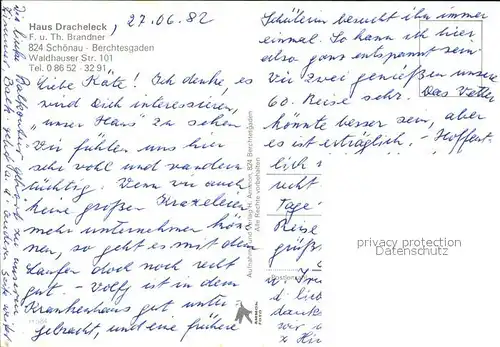 Haus Dracheleck, 27.06.82
F. u. Th. Brandner
824 Schönau - Berchtesgaden
Waldhauser Str. 101
Tel. 0 86 52 - 32 91
Liebe Käte! Ich denke, es
wird Dich interessieren,
"unser Haus" zu sehen
Wir fühlen uns hier
sehr wohl und wandern
tüchtig. Wenn wir auch
keine großen Kraxeleien
mehr unternehmen kön-
nen, so geht es mit dem
Laufen doch noch recht
gut. - Wolff ist in dem
Krankenhaus gut unter-
gebracht, und eine frühere
Schülerin besucht ihn immer
einmal. So kann ich hier
also ganz entspannt sein
Wir zwei genießen unsere
60. Reise sehr. Das Wetter
könnte besser sein, aber
es ist erträglich. - Hoffent-
lich
Tage
Reise
grüß
Die linke Balkontür gehört zu unserem
Zimmer, Balk. geht
Aufnahme und Verlag H. Ammon, 824 Berchtesgaden
Alle Rechte vorbehalten
AMMON
FOTO
privacy protection
Datenschutz